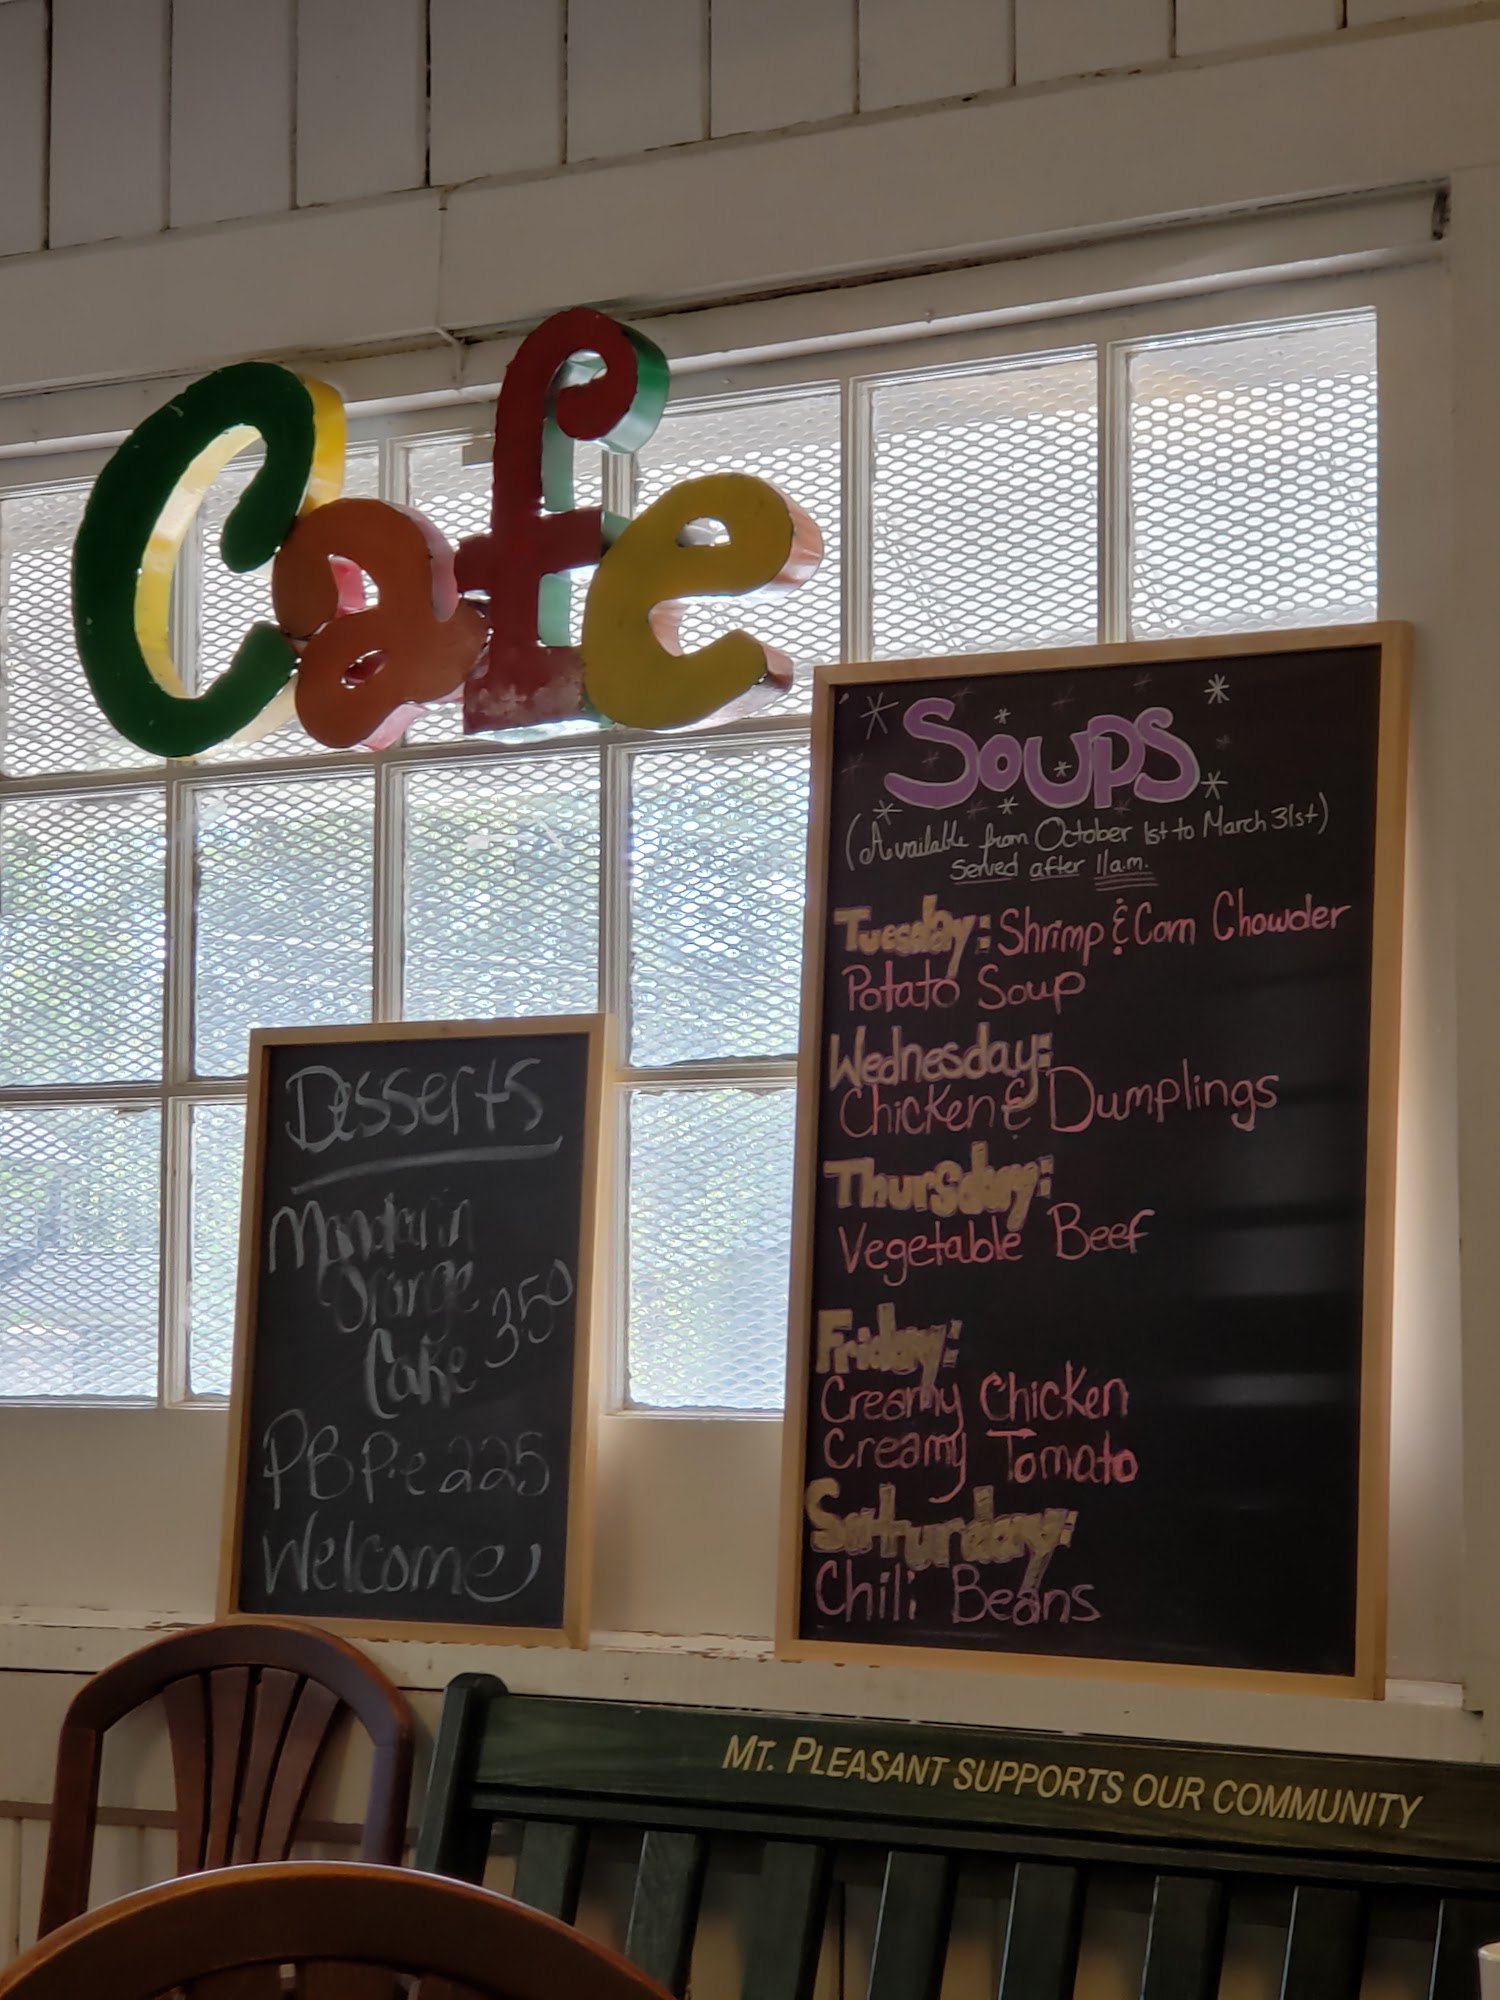 Cafe
Soups
(Available from October 1st to March 31st)
Served after 11a.m.
Tuesday: Shrimp & Corn Chowder
Potato Soup
Wednesday:
Chicken & Dumplings
Thursday:
Vegetable Beef
Friday:
Creamy Chicken
Creamy Tomato
Saturday:
Chili Beans
Desserts
Mandarin
Orange
Cake 350
PB Pie 225
Welcome
MT. PLEASANT SUPPORTS OUR COMMUNITY